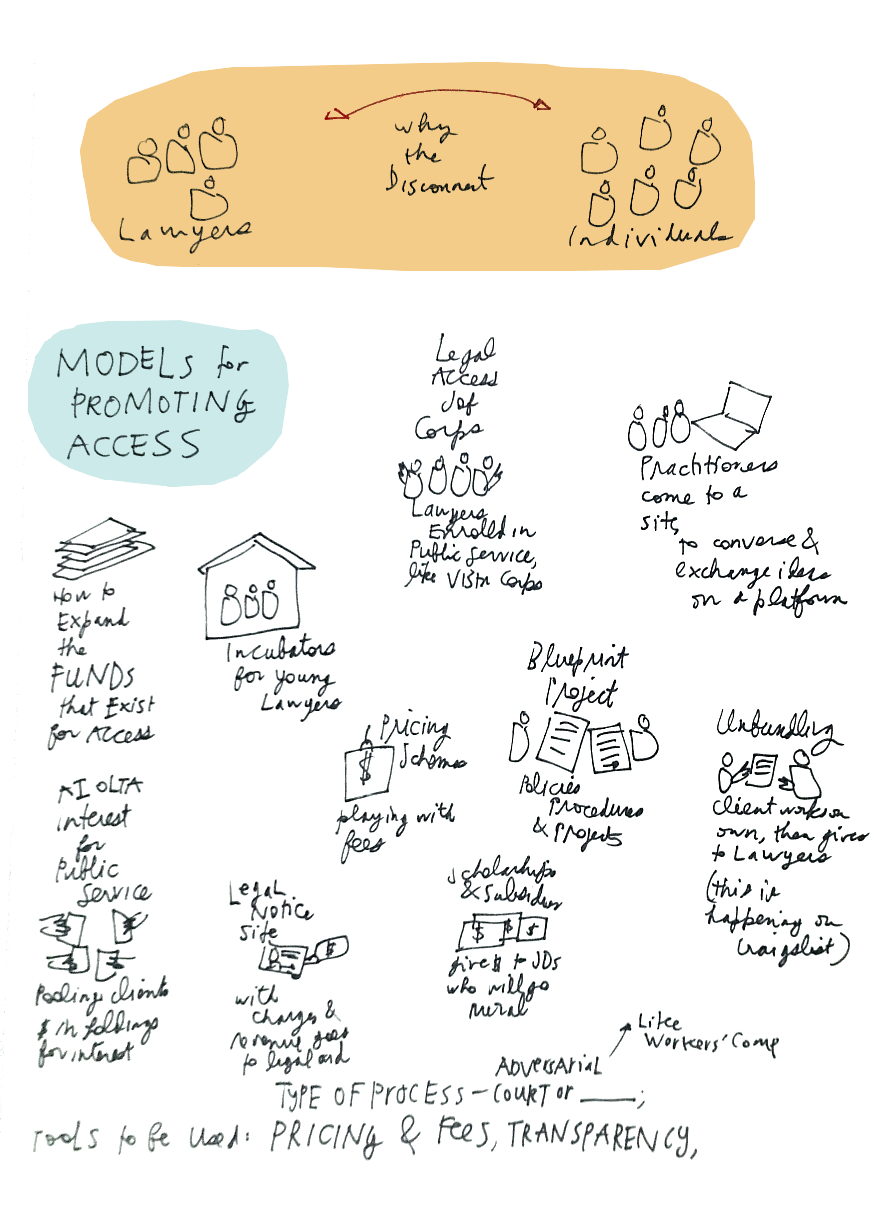 why
the
Disconnect
Lawyers
Individuals
MODELS for
PROMOTING
ACCESS
Legal
Access
Job
Corps
Lawyers
Enrolled in
Public Service,
like Vista Corps
Practitioners
come to a
site,
to converse &
exchange ideas
on a platform
How to
Expand
the
FUNDS
that Exist
for Access
Incubators
for young
Lawyers
Pricing
Schemes
$
playing with
fees
Blueprint
Project
Policies
Procedures
& Projects
Unbundling
Client works on
own, then gives
to Lawyers
(this is
happening on
Craigslist)
IOLTA
interest
for
Public
Service
Pooling clients
$ in holdings
for interest
Legal
Notice
Site
$
with
charges &
revenue goes
to legal aid
Scholarships
& Subsidies
$ $ $
give $ to JDs
who will go
rural
Adversarial
Like
Workers' Comp
TYPE OF PROCESS - COURT or ____;
Tools to be used: PRICING & FEES, TRANSPARENCY,